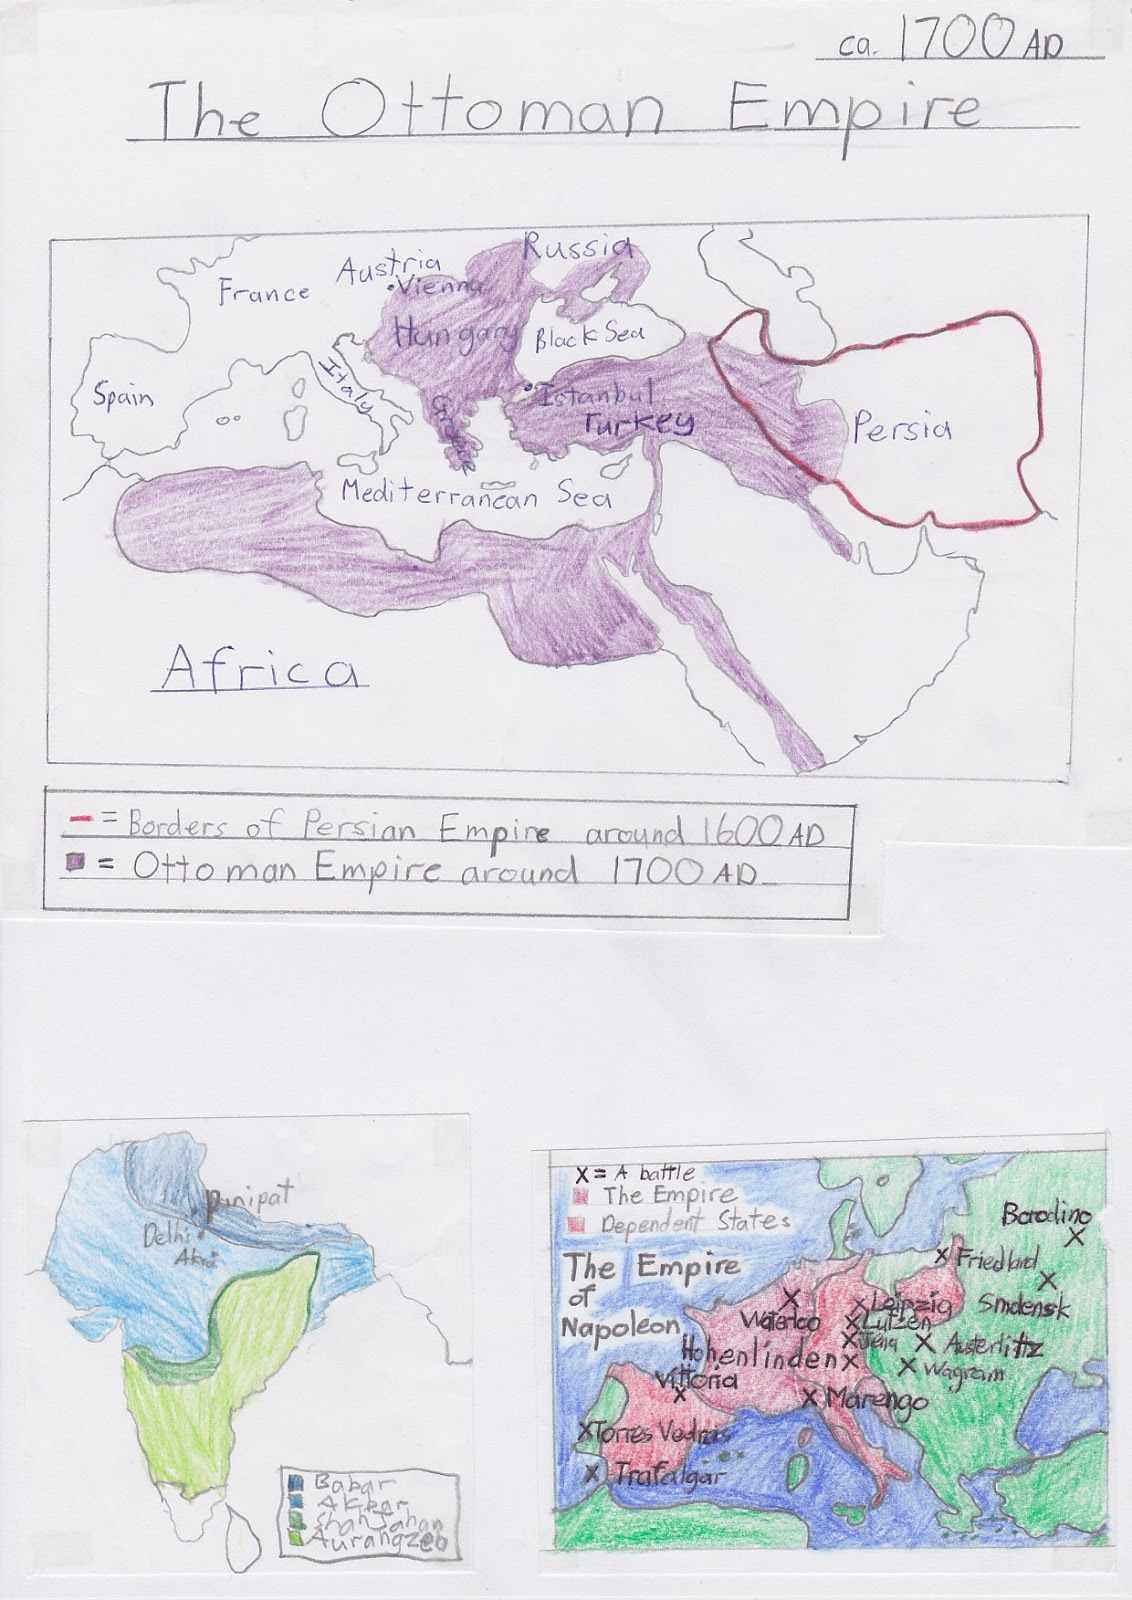 ca. 1700 AD
The Ottoman Empire
Russia
Austria
France
Vienna
Hungary
Black Sea
Italy
Spain
Istanbul
Greece
Turkey
Persia
Mediterranean Sea
Africa
= Borders of Persian Empire around 1600 AD
= Ottoman Empire around 1700 AD
Panipat
Delhi
Babar
Akbar
Shah Jahan
Aurangzeb
X = A battle
The Empire
Dependent States
The Empire
of
Napoleon
Borodino
Friedland
Smolensk
Leipzig
Waterloo
Lutzen
Jena
Austerlitz
Hohenlinden
Wagram
Vittoria
Marengo
Torres Vedras
Trafalgar